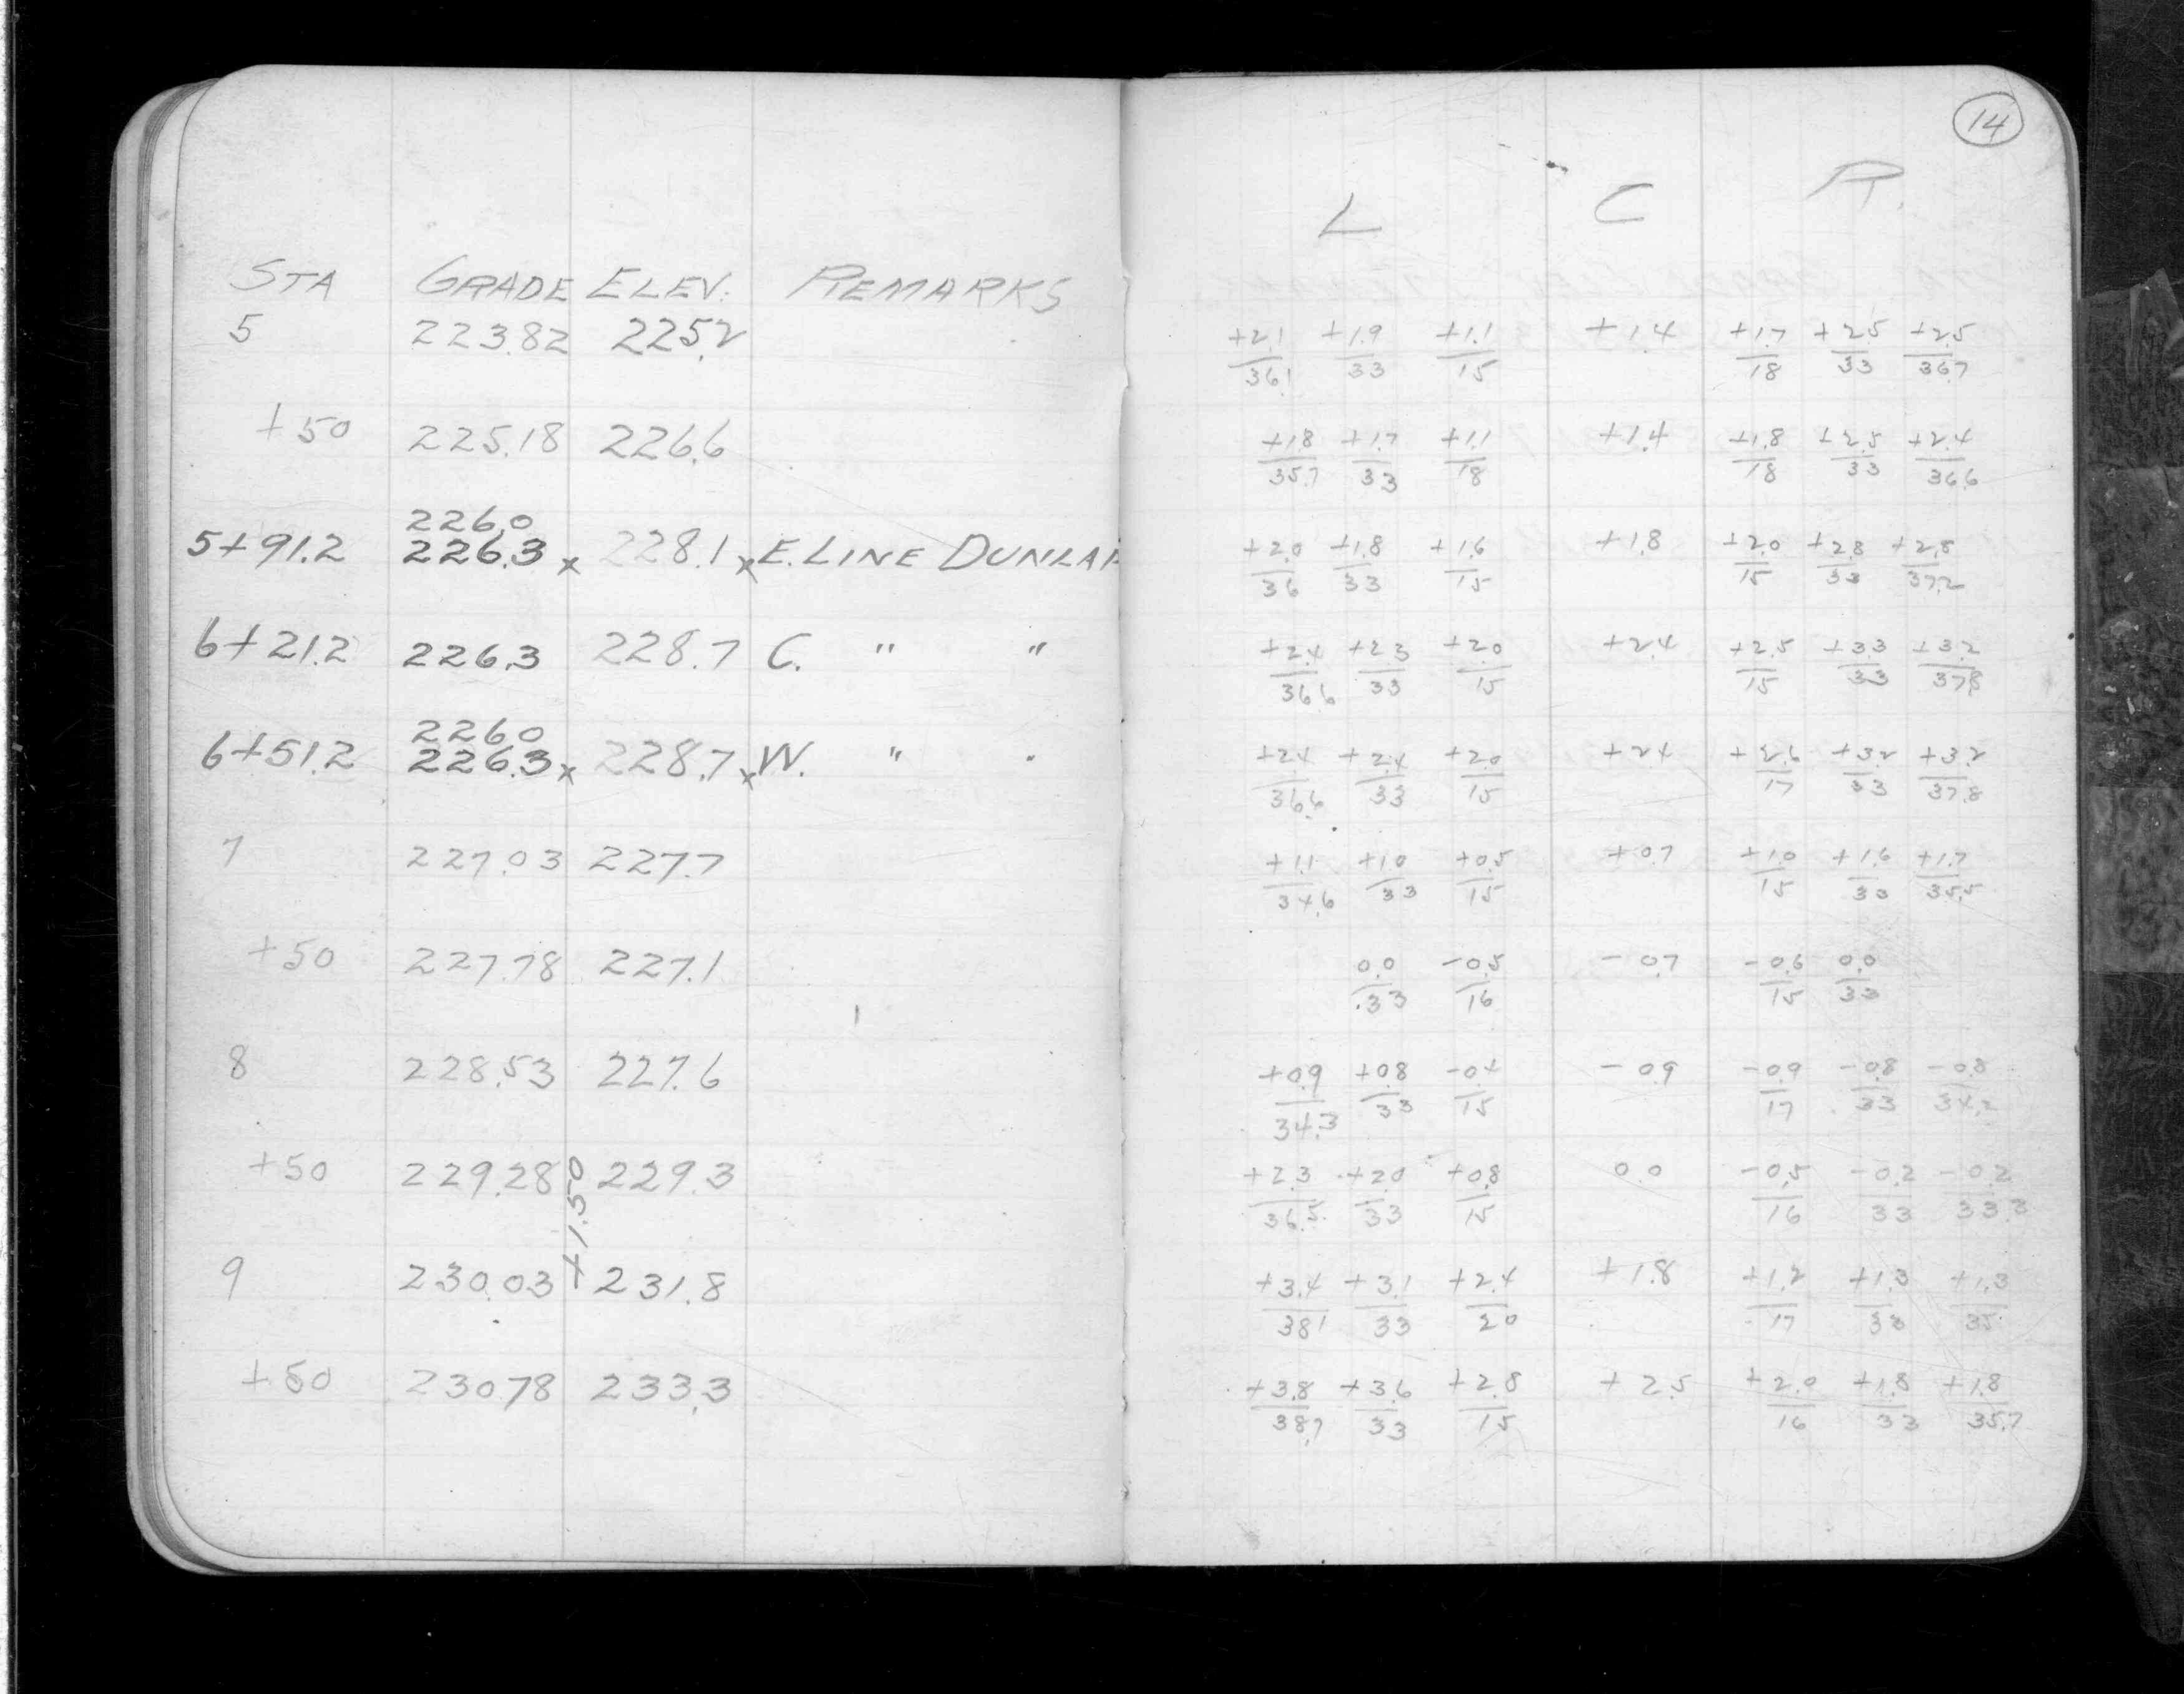 14
L C R.
STA GRADE ELEV. REMARKS
5 223.82 225.2
+2.1 +1.9 +1.1 +1.4 +1.7 +2.5 +2.5
36.1 33 15 18 33 36.7
+50 225.18 226.6
+1.8 +1.7 +1.1 +1.4 +1.8 +2.5 +2.4
35.7 33 18 18 33 36.6
226.0
5+91.2 226.3 x 228.1 x E. LINE DUNLAP
+2.0 +1.8 +1.6 +1.8 +2.0 +2.8 +2.8
36 33 15 15 33 37.2
6+21.2 226.3 228.7 C. " "
+2.4 +2.3 +2.0 +2.4 +2.5 +3.3 +3.2
36.6 33 15 15 33 37.8
226.0
6+51.2 226.3 x 228.7 x W. " "
+2.4 +2.4 +2.0 +2.4 +2.6 +3.2 +3.2
36.6 33 15 17 33 37.8
7 227.03 227.7
+1.1 +1.0 +0.5 +0.7 +1.0 +1.6 +1.7
34.6 33 15 15 33 35.5
+50 227.78 227.1
0.0 -0.5 -0.7 -0.6 0.0
33 16 15 33
8 228.53 227.6
+0.9 +0.8 -0.4 -0.9 -0.9 -0.8 -0.8
34.3 33 15 17 33 34.2
+50 229.28 229.3
+2.3 +2.0 +0.8 0.0 -0.5 -0.2 -0.2
36.5 33 15 16 33 33.3
+1.50
9 230.03 231.8
+3.4 +3.1 +2.4 +1.8 +1.2 +1.3 +1.3
38.1 33 20 17 33 35
+50 230.78 233.3
+3.8 +3.6 +2.8 +2.5 +2.0 +1.8 +1.8
38.7 33 15 16 33 35.7